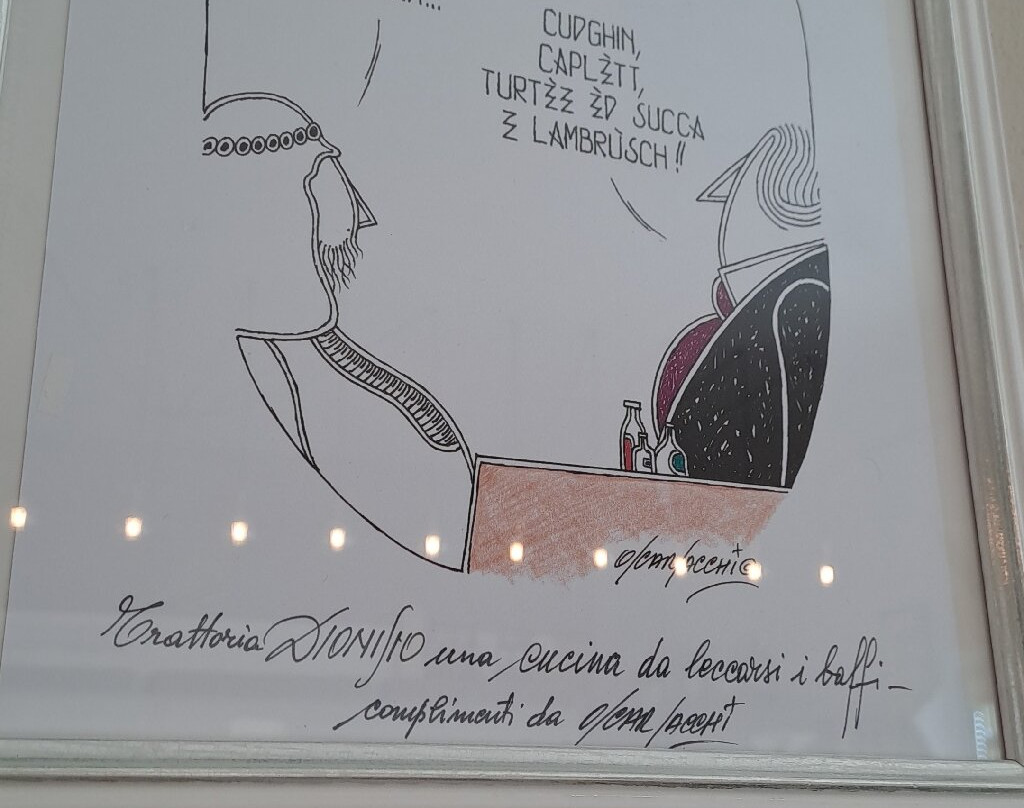 CUDGHIN,
CAPLÈTT,
TURTÈE ÈD SUCCA
E LAMBRÙSCH!!
OSCAR SACCHI ©
Trattoria DIONISIO una cucina da leccarsi i baffi -
complimenti da OSCAR SACCHI